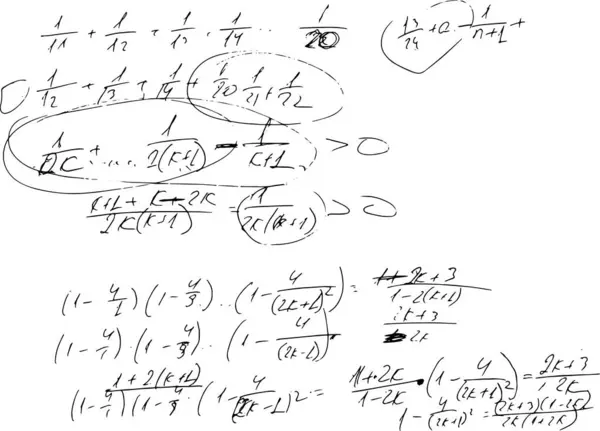 1/11 + 1/12 + 1/13 + 1/14 .. 1/20 13/24 + a - 1/(n+1) +
1/12 + 1/13 + 1/14 + 1/20 1/21 + 1/22
1/2K + .... 1/(2(K+1)) - 1/(K+1) > 0
(K+1+K-2K)/(2K(K+1)) = 1/(2K(K+1)) > 0
(1 - 4/1)(1 - 4/9)..(1 - 4/(2K+1)²) = (2K+3)/(1-2(K+1))
(1 - 4/1)·(1 - 4/9)..(1 - 4/(2K-1)) (2K+3)/2K
1+2(K+1)
(1 - 4/1)(1 - 4/9)·(1 - 4/(2K-1)² = (1+2K)/(1-2K) · (1 - 4/(2K+1)²) = (2K+3)/2K
1 - 4/(2K+1)² = (2K+3)(1-2K)/(2K(1+2K))